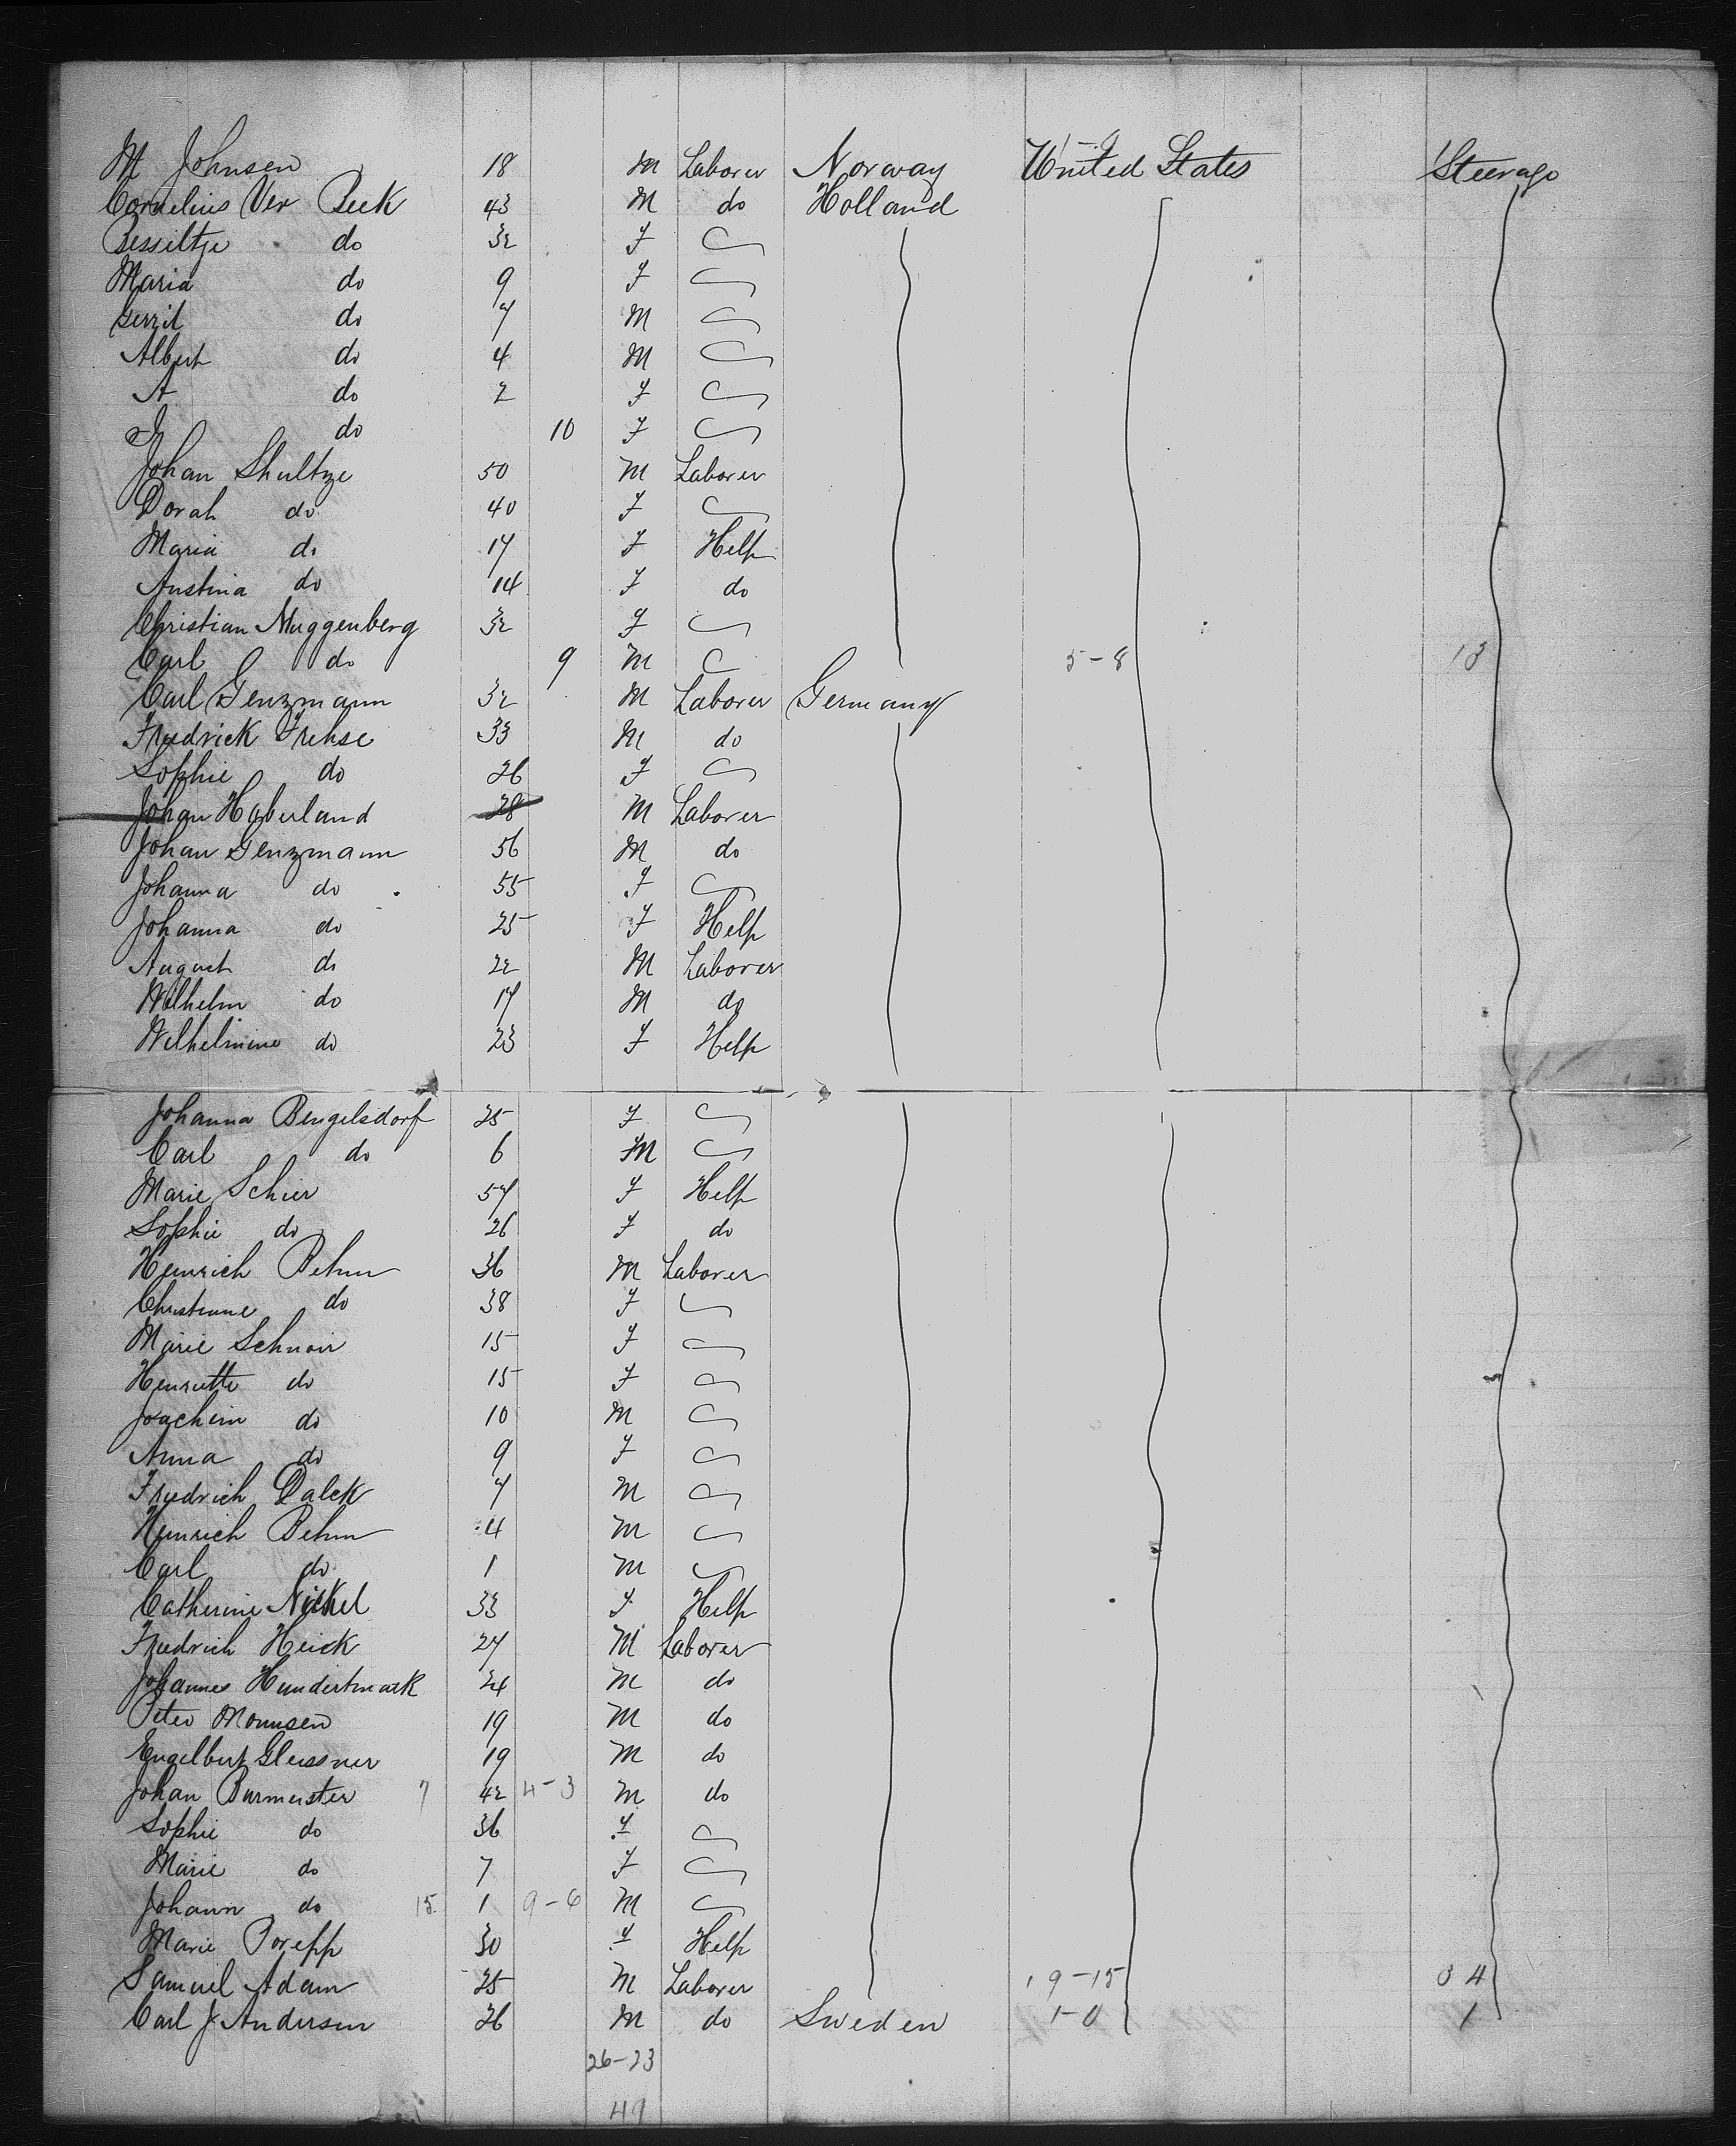 M Johnsen 18 M Laborer Norway United States Steerage
Cornelius Ver Beek 43 M do Holland
Bessiltje do 32 F
Maria do 9 F
Gerrit do 7 M
Albert do 4 M
A do 2 F
J do 10 F
Johan Shultze 50 M Laborer
Dorah do 40 F
Maria do 17 F Help
Austina do 14 F do
Christian Muggenberg 32 F
Carl do 9 M 5-8 13
Carl Genzmann 32 M Laborer Germany
Friedrick Frehse 33 M do
Sophie do 26 F
Johan Haberland 28 M Laborer
Johan Genzmann 56 M do
Johanna do 55 F
Johanna do 25 F Help
August do 22 M Laborer
Wilhelm do 17 M do
Wilhelmine do 23 F Help
Johanna Bengelsdorf 25 F
Carl do 6 M
Marie Schier 57 F Help
Sophie do 26 F do
Heinrich Behm 36 M Laborer
Christiane do 38 F
Marie Schnoir 15 F
Henriette do 15 F
Joachim do 10 M
Anna do 9 F
Friedrich Dalck 7 M
Heinrich Behm 4 M
Carl do 1 M
Catherine Nickel 33 F Help
Friedrich Heick 27 M Laborer
Johannes Hundertmark 24 M do
Peter Momsen 19 M do
Engelbert Glessner 19 M do
Johan Burmeister 7 42 4-3 M do
Sophie do 36 F
Marie do 7 F
Johann do 15 1 9-6 M
Marie Porepp 30 F Help
Samuel Adam 25 M Laborer 19-15 34
Carl J. Andersen 26 M do Sweden 1-0 1
26-23
49